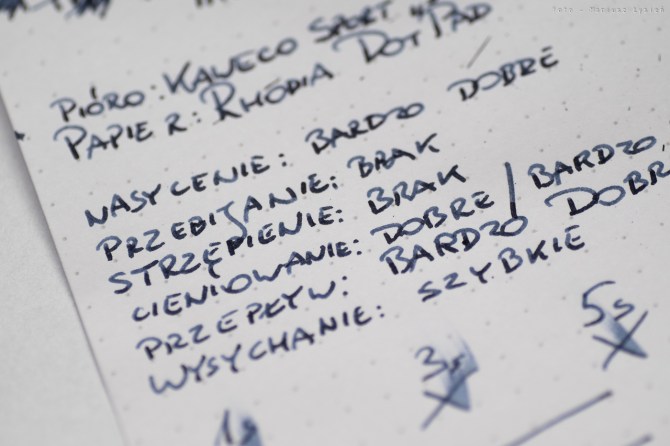 Foto - Mariusz Łysień
PIÓRO: KAWECO SPORT "M"
PAPIER: RHODIA DOT PAD
NASYCENIE: BARDZO DOBRE
PRZEBIJANIE: BRAK
STRZĘPIENIE: BRAK
CIENIOWANIE: DOBRE / BARDZO
PRZEPŁYW: BARDZO DOBR
WYSYCHANIE: SZYBKIE
1s 3s 5s